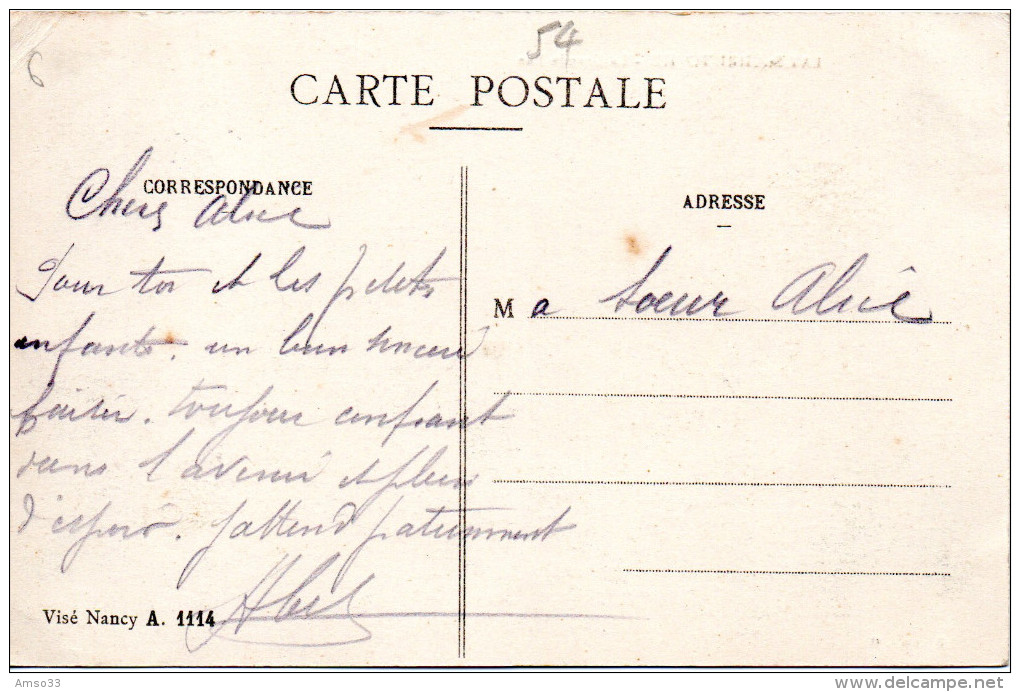 6
54
CARTE POSTALE
CORRESPONDANCE
Chere Alice
Pour toi et les petits
enfants. un bien sincere
baiser. toujour confiant
dans l'avenir et plein
d'espoir. J'attend patiemment
Abel
Visé Nancy A. 1114
ADRESSE
M a soeur Alice
Amso33
www.delcampe.net